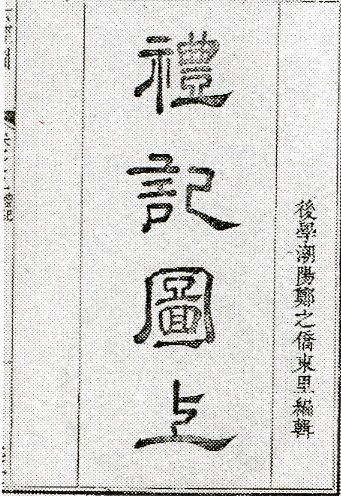 後學潮陽鄭之僑東里編輯
禮記圖上